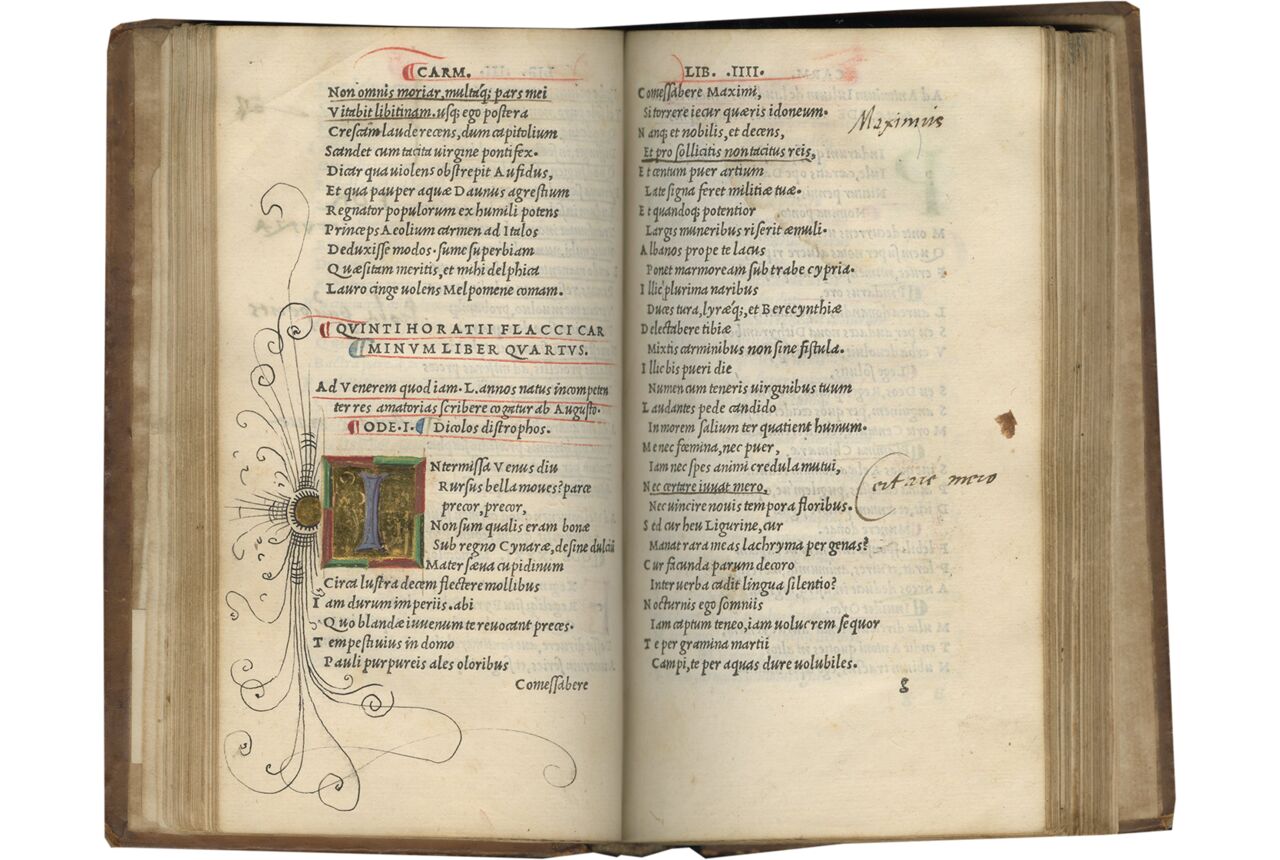 CARM.
Non omnis moriar, multáq; pars mei
Vitabit libitinam. usq; ego postera
Crescam laude recens, dum capitolium
Scandet cum tacita virgine pontifex.
Dicar qua uiolens obstrepit Aufidus,
Et qua pauper aquæ Daunus agrestium
Regnator populorum ex humili potens
Princeps Aeolium carmen ad Italos
Deduxisse modos. sume superbiam
Quæsitam meritis, et mihi delphica
Lauro cinge uolens Melpomene comam.
QVINTI HORATII FLACCI CAR
MINVM LIBER QVARTVS.
Ad Venerem quod iam. L. annos natus incompeten
ter res amatorias scribere cogatur ab Augusto.
ODE. I. Dicolos distrophos.
INtermissa Venus diu
Rursus bella moues? parce
precor, precor,
Non sum qualis eram bonæ
Sub regno Cynaræ, desine dulciũ
Mater sæua cupidinum
Circa lustra decem flectere mollibus
Iam durum imperiis. abi
Quo blandæ iuuenum te reuocant preces.
Tempestiuius in domo
Pauli purpureis ales oloribus
Comessabere
LIB. .IIII.
Comessabere Maximi,
Si torrere iecur quæris idoneum.
Nanq; et nobilis, et decens,
Maximus
Et pro sollicitis non tacitus reis,
Et centum puer artium
Late signa feret militiæ tuæ.
Et quandoq; potentior
Largis muneribus riserit æmuli.
Albanos prope te lacus
Ponet marmoream sub trabe cypria.
Illic plurima naribus
Duces tura, lyræq́; et Berecynthiæ
Delectabere tibiæ
Mixtis carminibus non sine fistula.
Illic bis pueri die
Numen cum teneris uirginibus tuum
Laudantes pede candido
In morem salium ter quatient humum.
Me nec fœmina, nec puer,
Iam nec spes animi credula mutui,
Nec certare iuuat mero,
Certare mero
Nec uincire nouis tempora floribus.
Sed cur heu Ligurine, cur
Manat rara meas lachryma per genas?
Cur facunda parum decoro
Inter uerba cadit lingua silentio?
Nocturnis ego somniis
Iam captum teneo, iam uolucrem sequor
Te per gramina martii
Campi, te per aquas dure uolubiles.
g